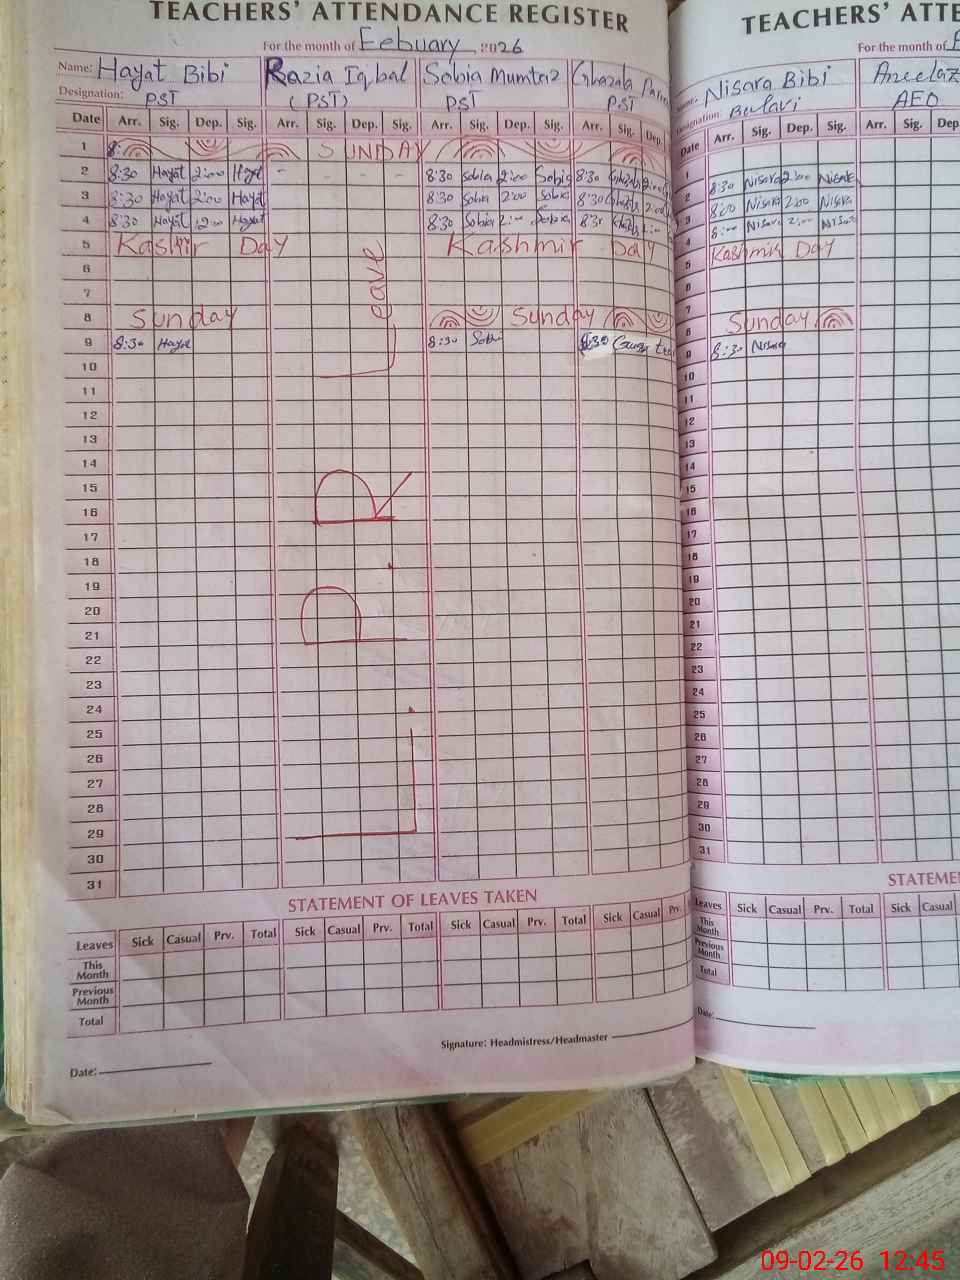 TEACHERS' ATTENDANCE REGISTER
For the month of Eebuary 2026
Name: Hayat Bibi Razia Iqbal Sobia Mumtaz Ghazala
Designation: PST (PST) PST PST
Date Arr. Sig. Dep. Sig. Arr. Sig. Dep. Sig. Arr. Sig. Dep. Sig. Arr. Sig. Dep.
1 8: SUNDAY
2 8:30 Hayat 2:00 Hayat - - - - 8:30 Sobia 2:00 Sobia 8:30 Ghazala 2:00
3 8:30 Hayat 2:00 Hayat 8:30 Sobia 2:00 Sobia 8:30 Ghazala 2:00
4 8:30 Hayat 12:00 Hayat 8:30 Sobia 2:- Sobia 8:30
5 Kashir Day Kashmir Day
6
7
8 Sunday Sunday
9 8:30 Hayat 8:30 Sobi 8:30
10
11
12
13
14
15
16
17
18
19
20
21
22
23
24
25
26
27
28
29
30
31
Leave
L.P.R
STATEMENT OF LEAVES TAKEN
Leaves Sick Casual Prv. Total Sick Casual Prv. Total Sick Casual Prv. Total Sick Casual Prv.
This Month
Previous Month
Total
Signature: Headmistress/Headmaster
Date:
TEACHERS' ATTE
For the month of
Name: Nisara Bibi
Designation: AEO
Date Arr. Sig. Dep. Sig. Arr. Sig. Dep
1
2 8:30 Nisara 2:00 Nisara
3 8:00 Nisara 2:00 Nisara
4 8:- Nisara 2:- Nisara
5 Kashmir Day
6
7
8 Sunday
9 8:30 Nisara
10
11
12
13
14
15
16
17
18
19
20
21
22
23
24
25
26
27
28
29
30
31
STATEME
Leaves Sick Casual Prv. Total Sick Casual
This Month
Previous Month
Total
Date:
09-02-26 12:45